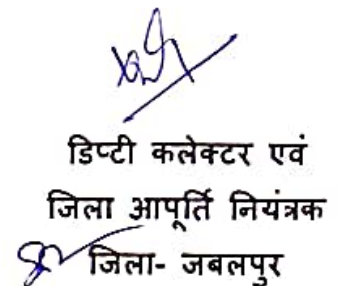 डिप्टी कलेक्टर एवं
जिला आपूर्ति नियंत्रक
जिला- जबलपुर